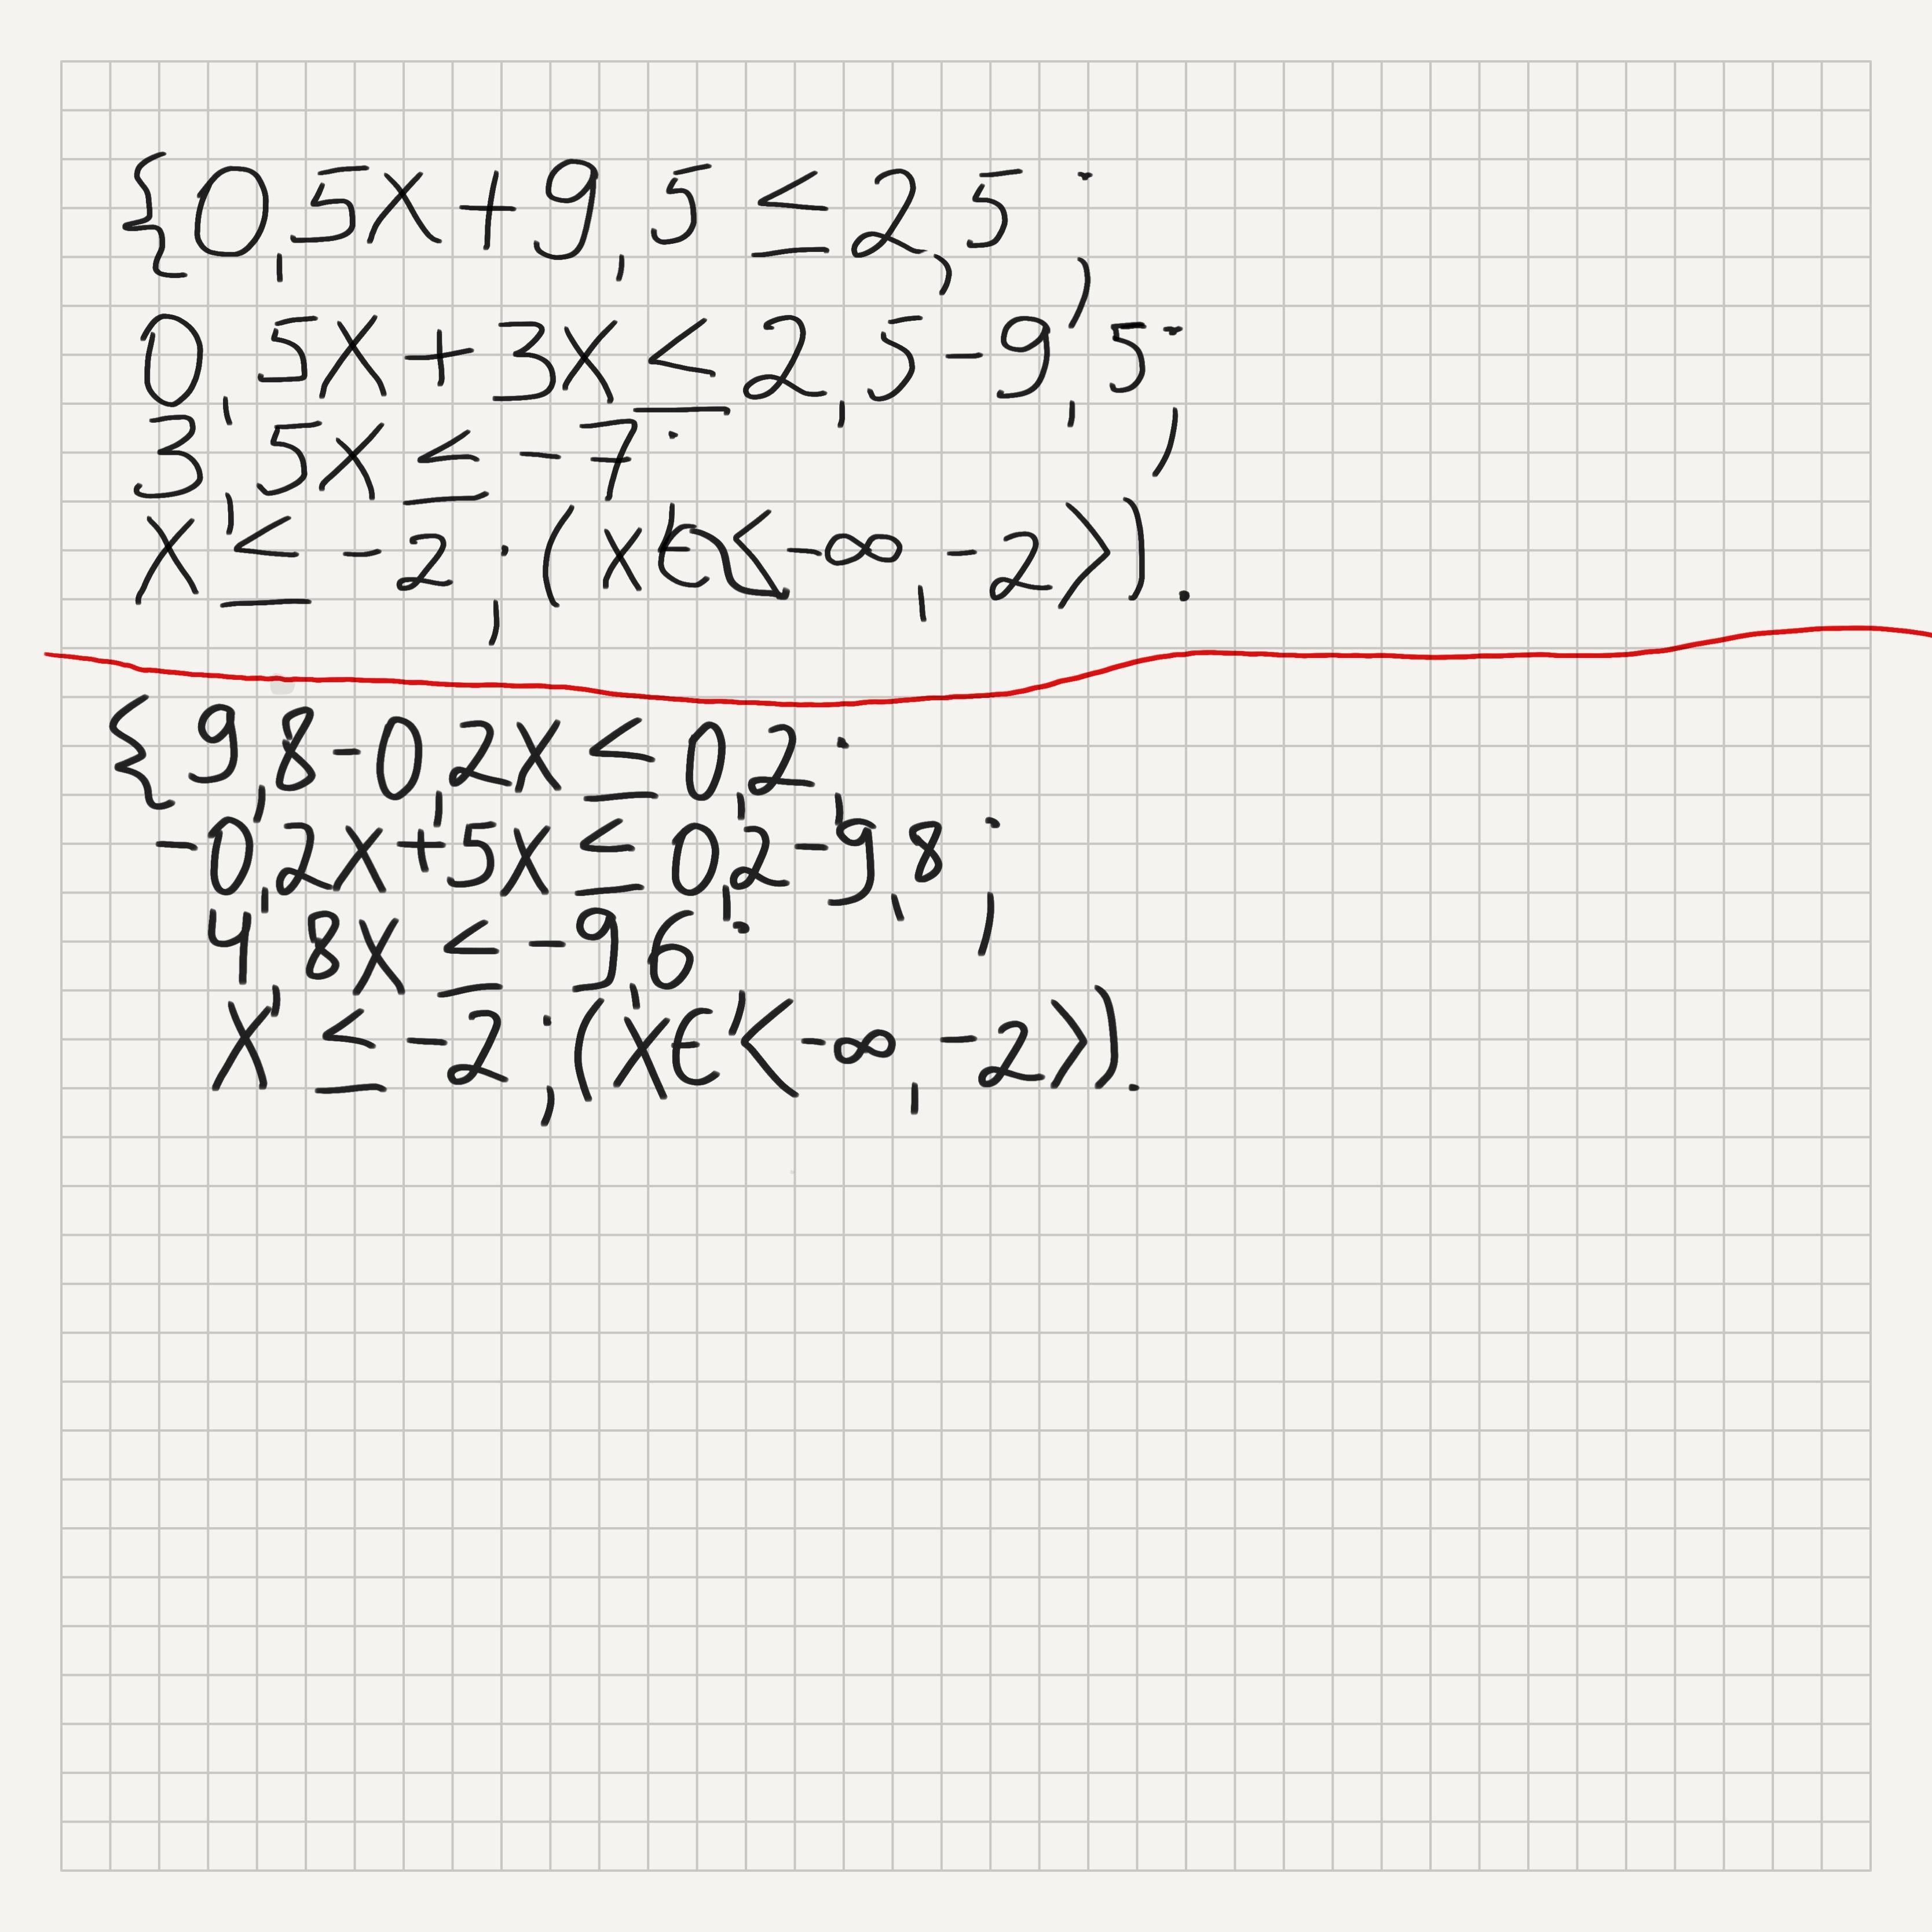 {0,5x+9,5≤2,5;
0,5x+3x≤2,5-9,5;
3,5x≤-7;
x≤-2;(x∈<-∞,-2>).
{9,8-0,2x≤0,2;
-0,2x+5x≤0,2-9,8;
4,8x≤-9,6;
x≤-2;(x∈<-∞,-2>).